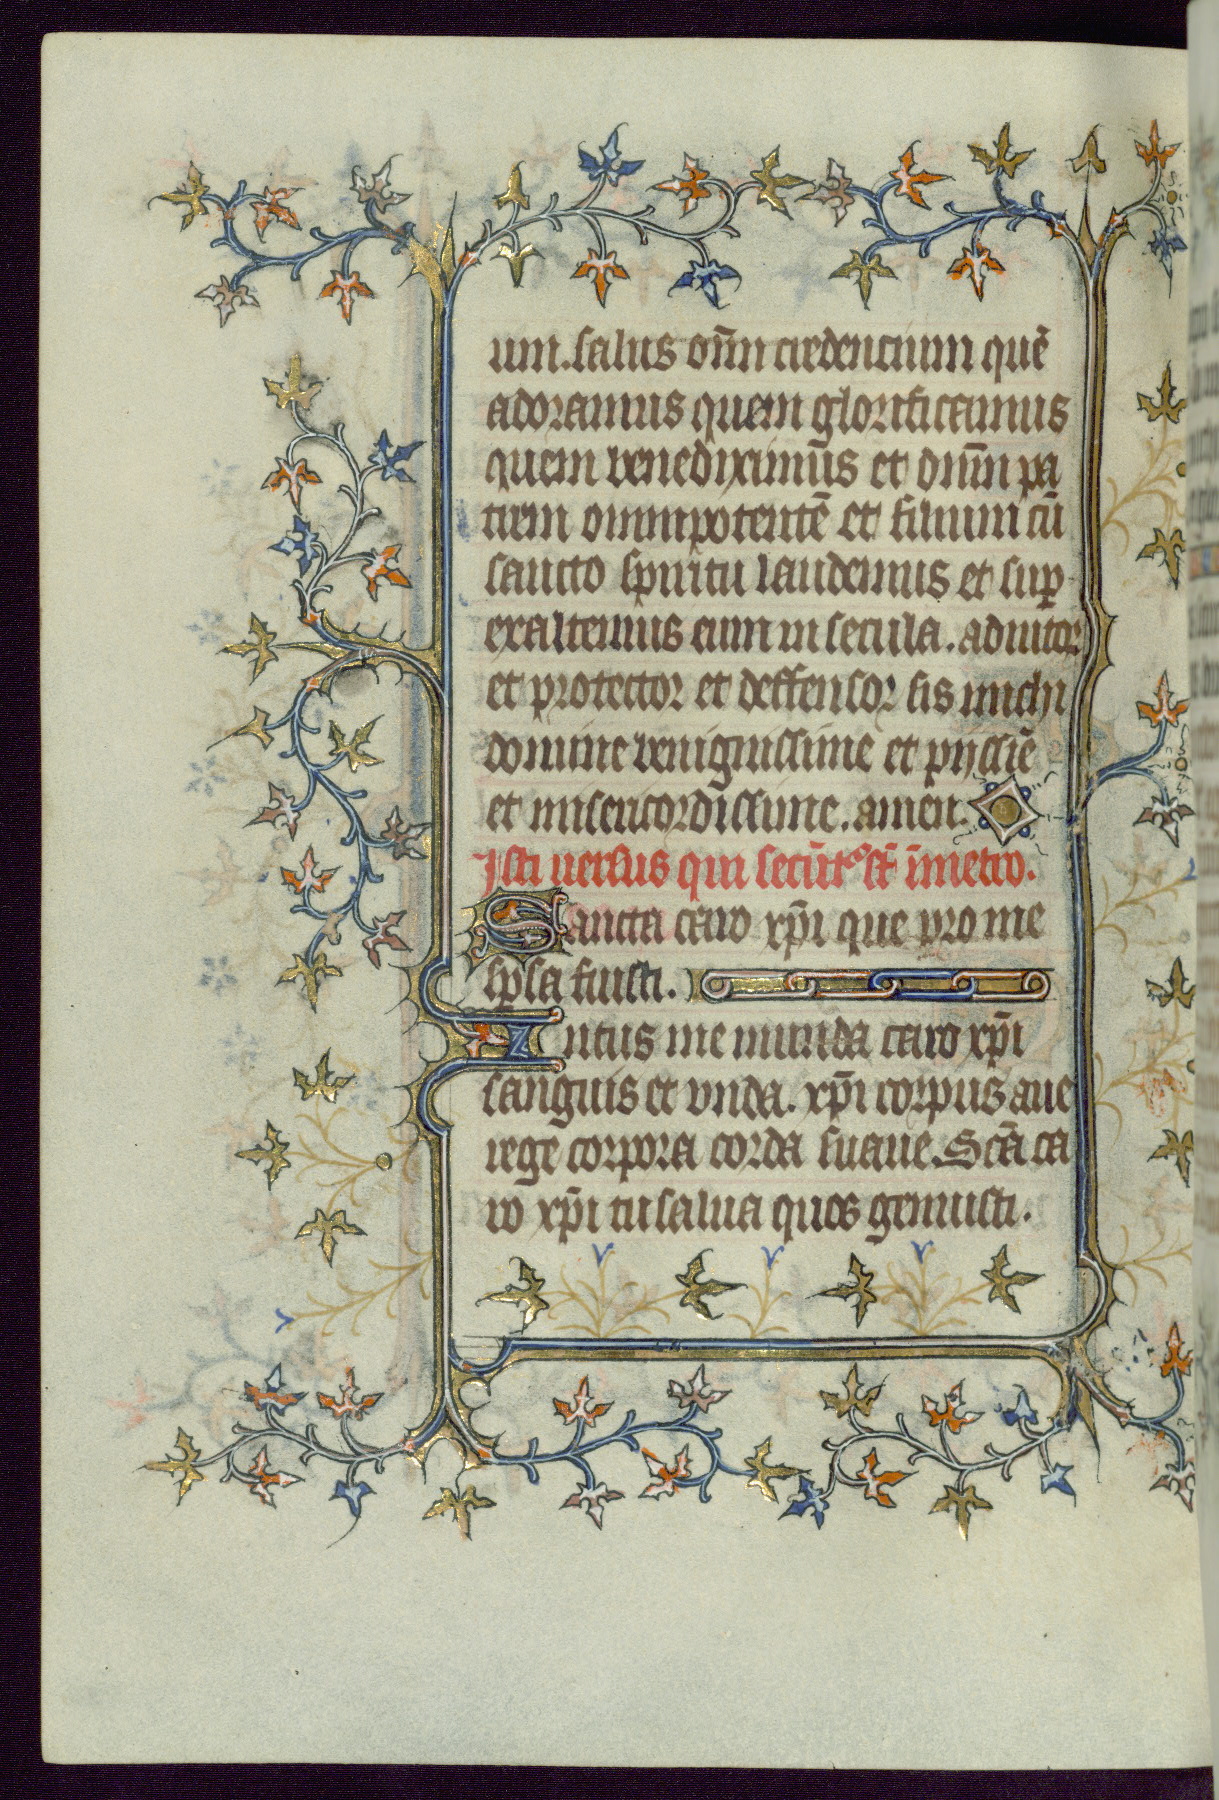 um. salus oīm credencium quē
adoramus quem glorificamus
quem benediximus et dn̄m pa
trem omnipotentē et filium cū
sancto spiritu laudemus et sup̱
exaltemus eum in secula. adiutor
et protector et deffensor sis michi
domine benignissime et pijssīe
et misericordissime. amen.
Isti uersus qui secūt͛ s̄t ī metro.
Sancta caro xp̄i que pro me
sp̱sa fuisti.
Intus me munda caro xp̄i
sanguis et vnda. xp̄i corpus aue
rege corpora corda suaue. Scā ca
ro xp̄i tu salua quos genuisti.